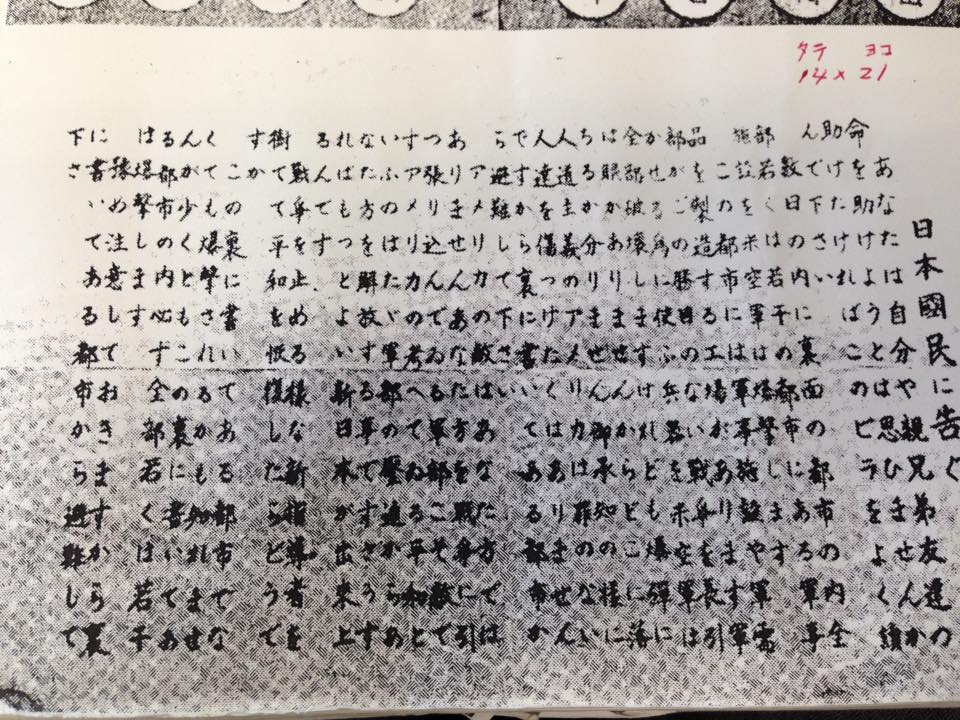 タテ ヨコ
14×21
日本國民に告ぐ
あなたは自分や親兄弟友達の
命を助けようとは思ひませんか
助けたければこのビラをよく讀
んで下さい
数日の内に裏面の都市の内全
部若くは若干の都市にある軍事
施設を米空軍は爆撃します
この都市には軍事施設や軍需
品を製造する工場があります軍
部がこの勝目のない戦争を長引
かせる為に使ふ兵器を米空軍は
全部破壊しますけれども爆弾に
は眼がありませんからどこに落
ちるか分りません御承知の様に
人道主義のアメリカは罪のない
人達を傷つけたくはありません
ですから裏に書いてある都市か
ら避難して下さい
アメリカの敵はあなた方では
ありませんあなた方を戦争に引
つ張り込んでゐる軍部こそ敵で
すアメリカの考へてゐる平和と
いふのはたゞ軍部の壓迫からあ
なた方を解放する事ですそうす
ればもつとよい新日本が出来上
るんです
戦争を止める様な新指導者を
樹てて平和を恢復したらどうで
すか
この裏に書いてある都市でな
くても爆撃されるかも知れませ
んが少くともこの裏に書いてあ
る都市の内必ず全部若くは若干
は爆撃します
豫め注意しておきますから裏
に書いてある都市から避難して
下さい